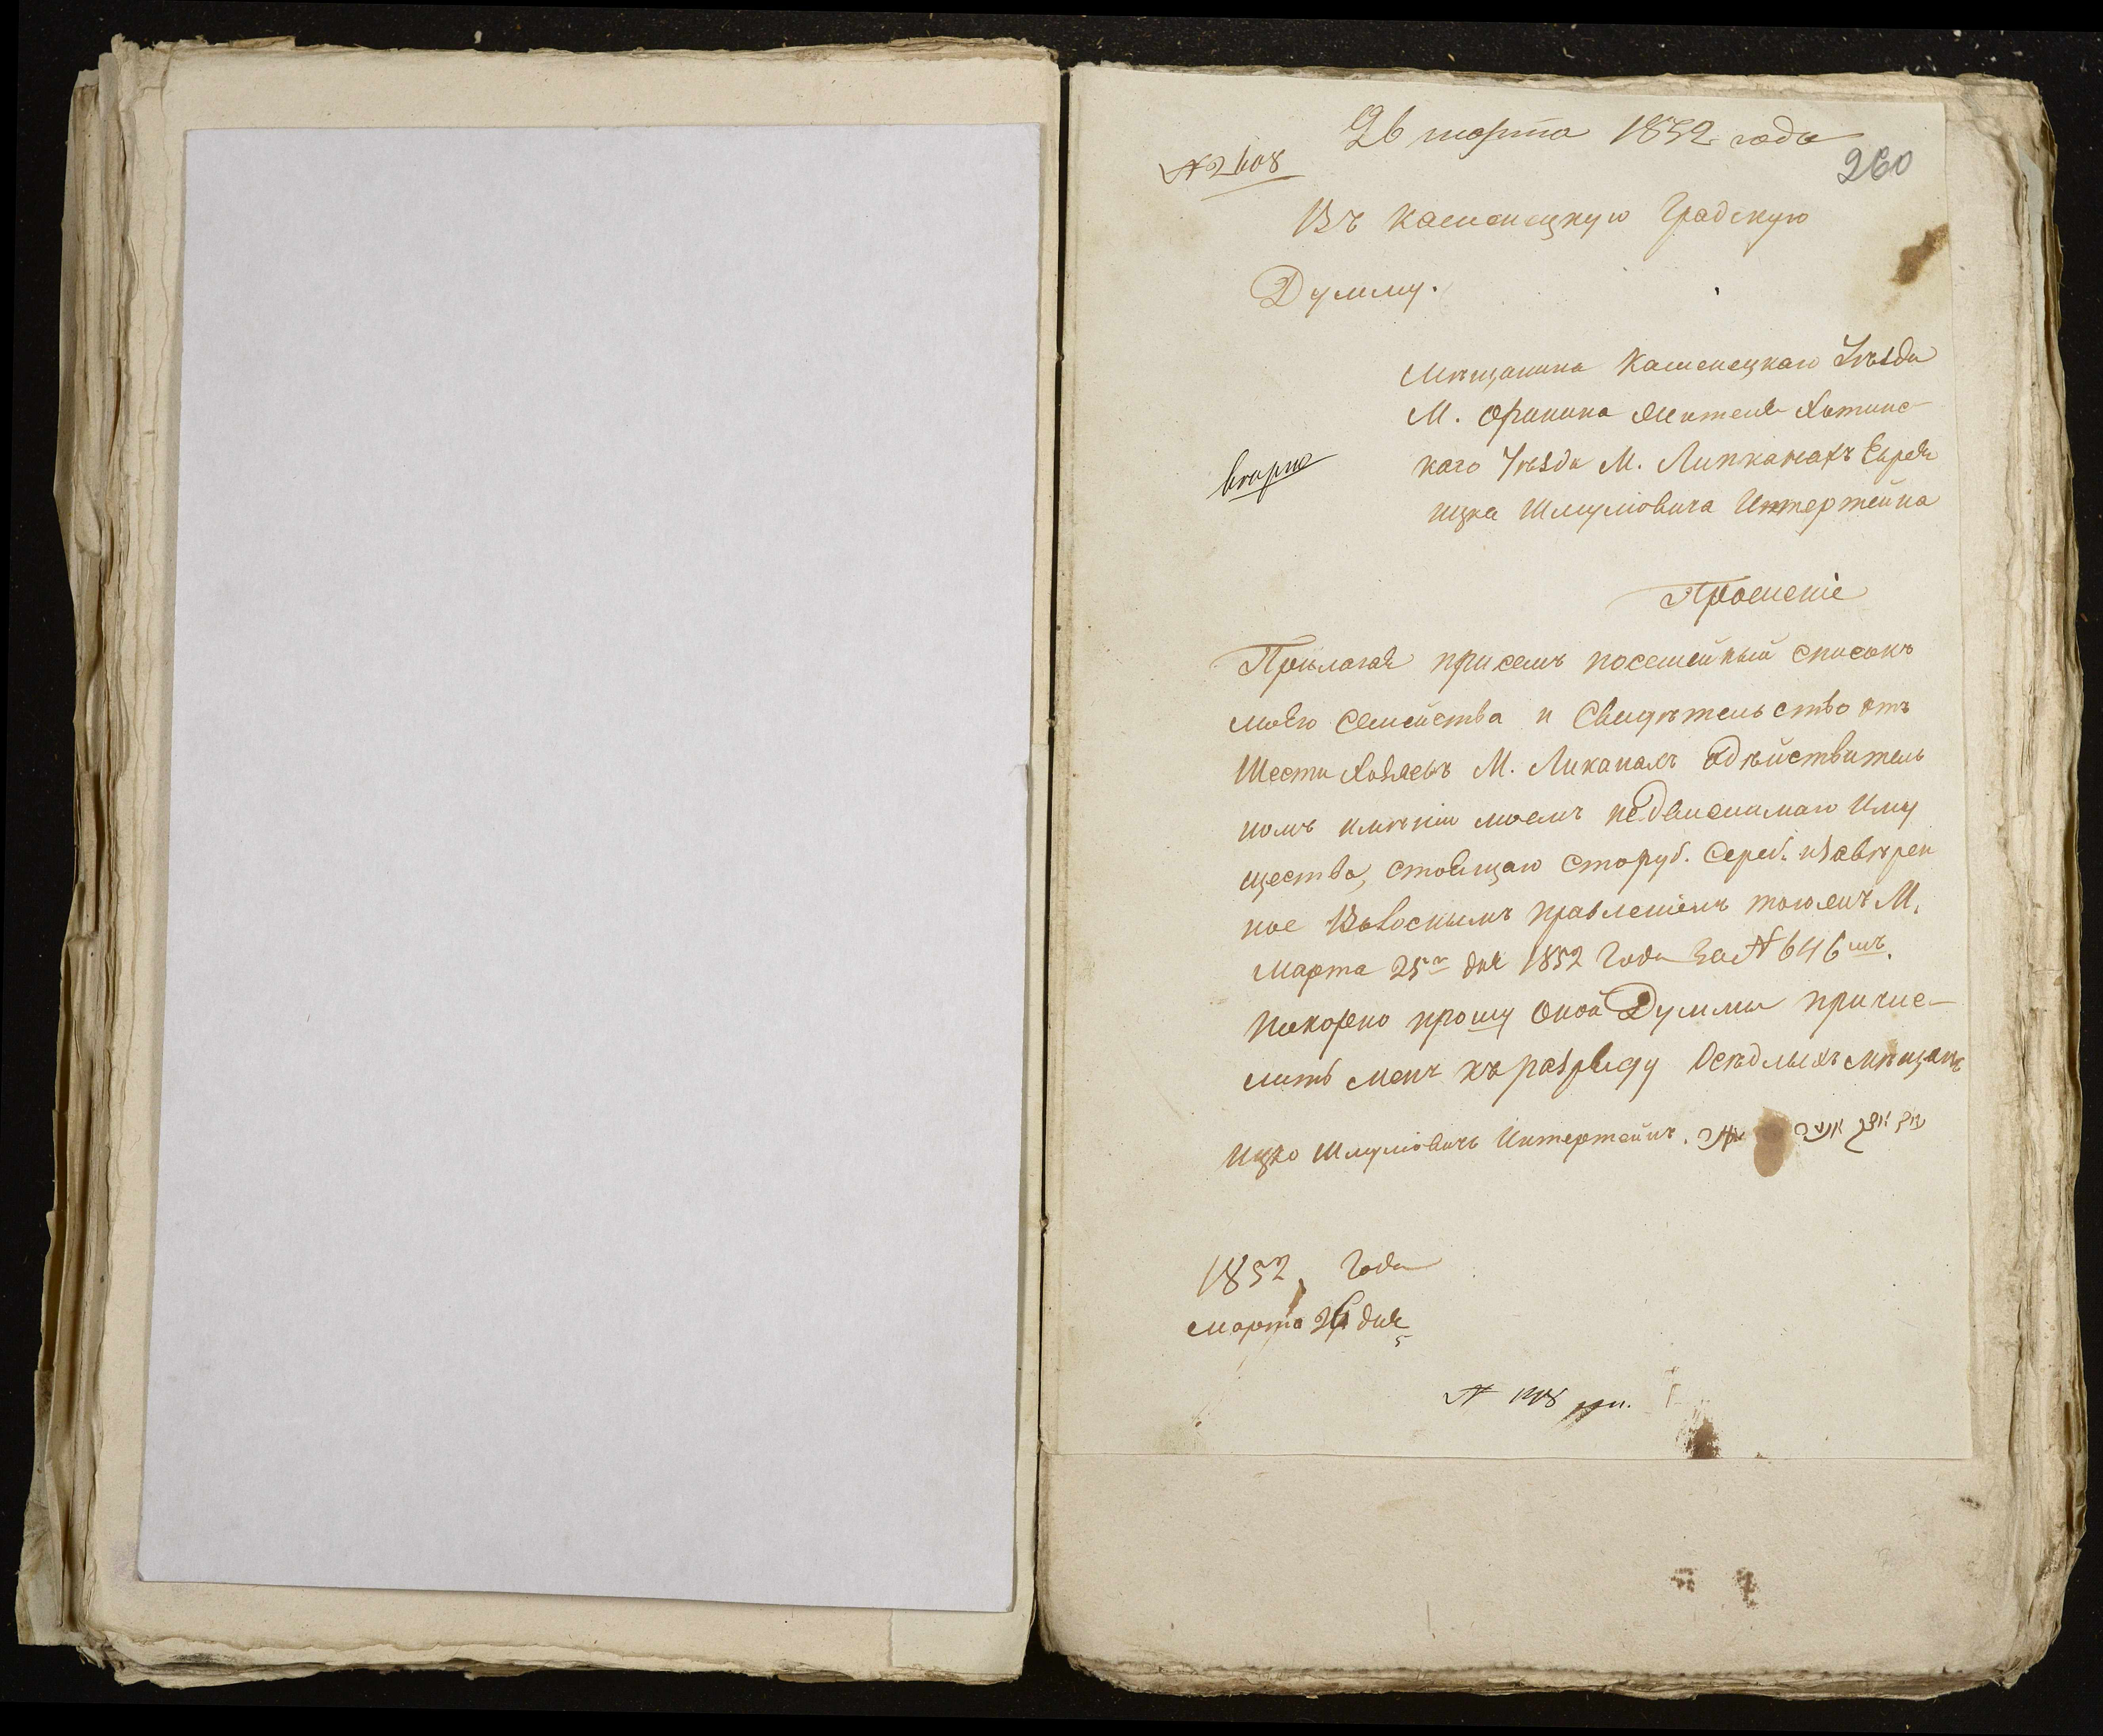 26 марта 1852 года
№ 2408
260
Въ Каменецкую Градскую
Думму.
Мѣщанина Каменецкаго Уѣзда
М. Оринина Жителя Хотинс-
каго Уѣзда М. Липканахъ Еврея
Ицка Шмулювича Интертейна
Прошеніе
Прилагая присемъ посемейный списокъ
моего Семейства и Свидѣтельство отъ
Шести Хозяевъ М. Ликанахъ Одѣйствитель
номъ имѣніи моемъ недвижимаго Иму
щества, стоящаго сторуб. Сереб. изавѣрен
ное Волоснымъ правленіемъ тогожъ М.
Марта 25 дня 1852 Года За № 646мъ.
покорно прошу Оной Думмы причис-
лить менѣ къ разряду Осѣдлыхъ мѣщанъ
Ицко Шмулювичъ Интертейнъ.
1852 Года
Марта 26 дня
№